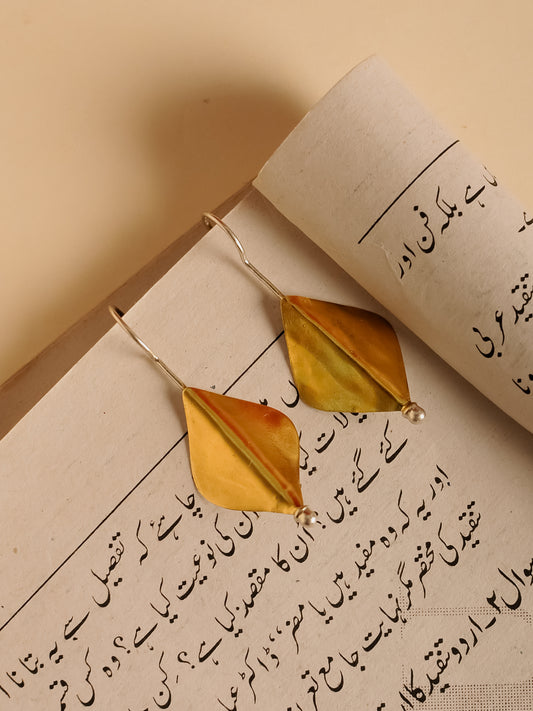 ہے بلکہ فن اور
تنقید عربی
چاہئے کہ تفصیل سے یہ بتانا
ان کی نوعیت کیا ہے؟ وہ کس قسم
کئے گئے ہیں؟ ان کا مقصد کیا ہے؟
اور یہ کہ وہ مفید ہیں یا مضر‘‘ ڈاکٹر
تنقید کی مختصر مگر نہایت جامع
سوال ۲۔ اردو تنقید کا